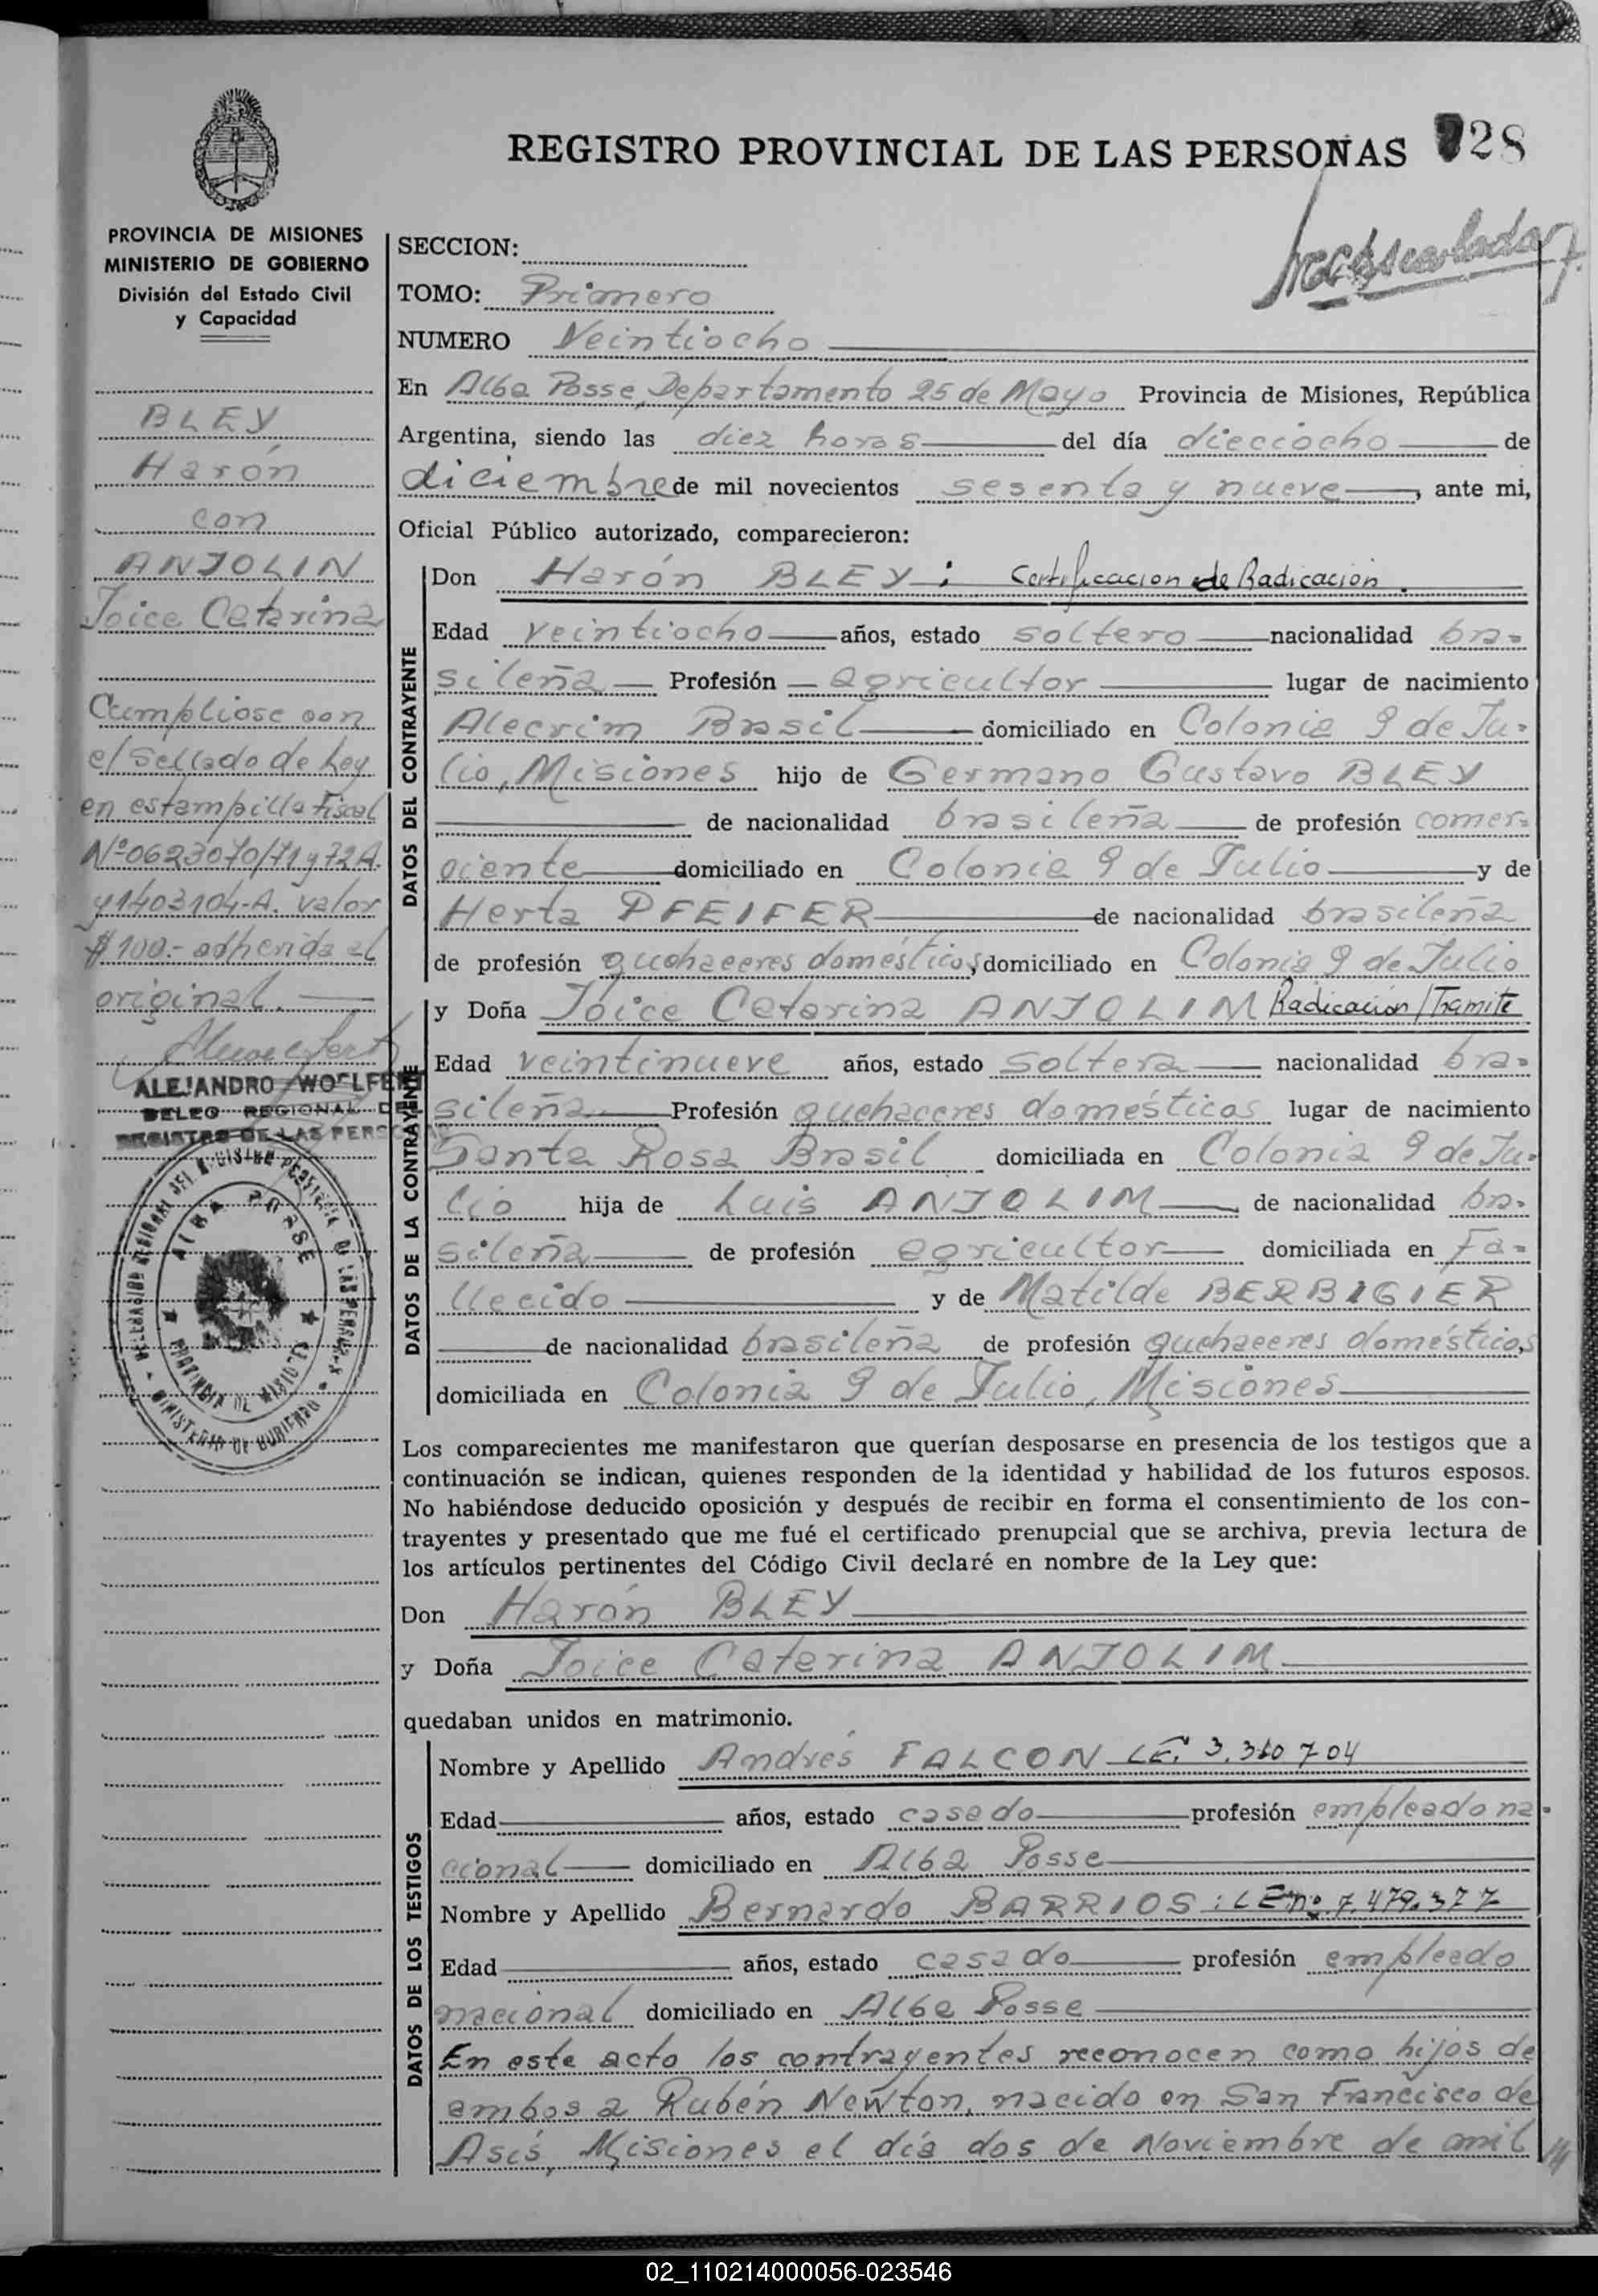 REGISTRO PROVINCIAL DE LAS PERSONAS 28
PROVINCIA DE MISIONES
MINISTERIO DE GOBIERNO
División del Estado Civil
y Capacidad
BLEY
Harón
con
ANJOLIN
Joice Catarina
Cumpliose con
el sellado de Ley
en estampilla Fiscal
Nº 0623070/71 y 72A.
y 1403104-A. valor
$ 100.- adherida al
original.
ALEJANDRO WOLFERT
DELEG REGIONAL DEL
REGISTRO DE LAS PERSONAS
DELEGACION REGIONAL DEL REGISTRO PROVINCIAL DE LAS PERSONAS
ALBA POSSE
PROVINCIA DE MISIONES
MINISTERIO DE GOBIERNO
SECCION:
TOMO: Primero
NUMERO Veintiocho
En Alba Posse, Departamento 25 de Mayo Provincia de Misiones, República
Argentina, siendo las diez horas del día dieciocho de
diciembre de mil novecientos sesenta y nueve, ante mi,
Oficial Público autorizado, comparecieron:
DATOS DEL CONTRAYENTE
Don Harón BLEY: Certificacion de Radicacion.
Edad veintiocho años, estado soltero nacionalidad bra-
sileña Profesión agricultor lugar de nacimiento
Alecrim Brasil domiciliado en Colonia 9 de Ju-
lio, Misiones hijo de Germano Gustavo BLEY
de nacionalidad brasileña de profesión comer-
ciante domiciliado en Colonia 9 de Julio y de
Herta PFEIFER de nacionalidad brasileña
de profesión quehaceres domésticos, domiciliado en Colonia 9 de Julio
DATOS DE LA CONTRAYENTE
y Doña Joice Catarina ANJOLIM Radicacion/Tramite
Edad veintinueve años, estado soltera nacionalidad bra-
sileña Profesión quehaceres domésticos lugar de nacimiento
Santa Rosa Brasil domiciliada en Colonia 9 de Ju-
lio hija de Luis ANJOLIM de nacionalidad bra-
sileña de profesión agricultor domiciliada en Fa-
llecido y de Matilde BERBIGIER
de nacionalidad brasileña de profesión quehaceres domésticos,
domiciliada en Colonia 9 de Julio, Misiones
Los comparecientes me manifestaron que querían desposarse en presencia de los testigos que a
continuación se indican, quienes responden de la identidad y habilidad de los futuros esposos.
No habiéndose deducido oposición y después de recibir en forma el consentimiento de los con-
trayentes y presentado que me fué el certificado prenupcial que se archiva, previa lectura de
los artículos pertinentes del Código Civil declaré en nombre de la Ley que:
Don Harón BLEY
y Doña Joice Caterina ANJOLIM
quedaban unidos en matrimonio.
DATOS DE LOS TESTIGOS
Nombre y Apellido Andrés FALCON LE. 3.310704
Edad años, estado casado profesión empleado na-
cional domiciliado en Alba Posse
Nombre y Apellido Bernardo BARRIOS: LE nº 7.479.377
Edad años, estado casado profesión empleado
nacional domiciliado en Alba Posse
En este acto los contrayentes reconocen como hijos de
ambos a Rubén Newton, nacido en San Francisco de
Asís, Misiones el día dos de Noviembre de mil
02_110214000056-023546